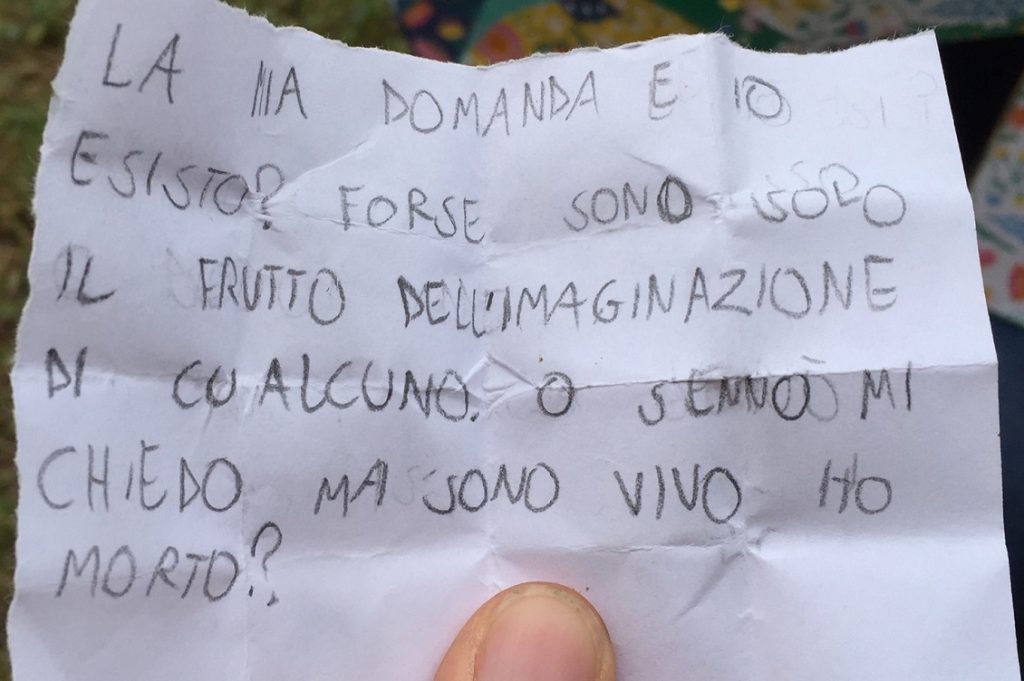 LA MIA DOMANDA E IO
ESISTO? FORSE SONO SOLO
IL FRUTTO DELL'IMAGINAZIONE
DI CUALCUNO. O SENNÒ MI
CHIEDO MA SONO VIVO HO
MORTO?